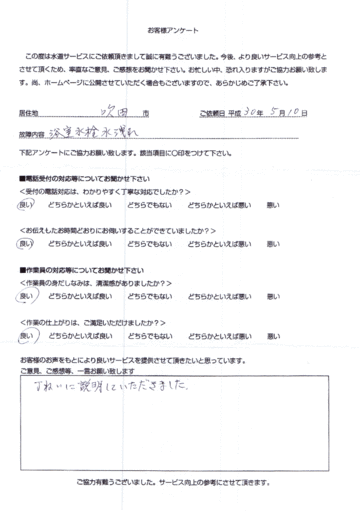 お客様アンケート
この度は水道サービスにご依頼頂きまして誠に有難うございました。今後、より良いサービス向上の参考と
させて頂くため、率直なご意見、ご感想をお聞かせ下さい。お忙しい中、恐れ入りますがご協力お願い致しま
す。尚、ホームページに公開させていただく場合もございますので、あらかじめご了承下さい。
居住地 吹田 市 ご依頼日 平成 30年 5月 10日
故障内容 浴室水栓水漏れ
下記アンケートにご協力お願い致します。該当項目に○印をつけて下さい。
■電話受付の対応等についてお聞かせ下さい
<受付の電話対応は、わかりやすく丁寧な対応でしたか？>
良い どちらかといえば良い どちらでもない どちらかといえば悪い 悪い
<お伝えしたお時間どおりにお伺いすることができていましたか？>
良い どちらかといえば良い どちらでもない どちらかといえば悪い 悪い
■作業員の対応等についてお聞かせ下さい
<作業員の身だしなみは、清潔感がありましたか？>
良い どちらかといえば良い どちらでもない どちらかといえば悪い 悪い
<作業の仕上がりは、ご満足いただけましたか？>
良い どちらかといえば良い どちらでもない どちらかといえば悪い 悪い
お客様のお声をもとにより良いサービスを提供させて頂きたいと思っています。
ご意見、ご感想等、一言お願い致します
ていねいに説明していただきました.
ご協力有難うございました。サービス向上の参考にさせて頂きます。